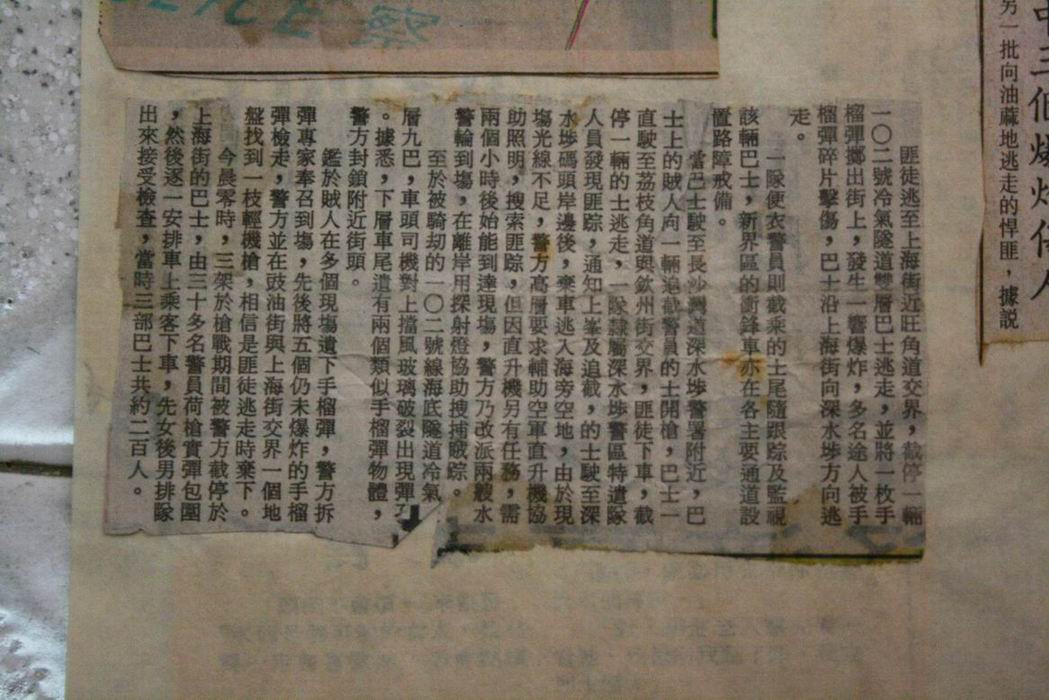 另一批向油蔴地逃走的悍匪，據説
匪徒逃至上海街近旺角道交界，截停一輛
一〇二號冷氣隧道雙層巴士逃走，並將一枚手
榴彈擲出街上，發生一響爆炸，多名途人被手
榴彈碎片擊傷，巴士沿上海街向深水埗方向逃
走。
一隊便衣警員則截乘的士尾隨跟踪及監視
該輛巴士，新界區的衝鋒車亦在各主要通道設
置路障戒備。
當巴士駛至長沙灣道深水埗警署附近，巴
士上的賊人向一輛追截警員的士開槍，巴士一
直駛至荔枝角道與欽州街交界，匪徒下車，截
停一輛的士逃走，一隊隸屬深水埗警區特遣隊
人員發現匪踪，通知上峯及追截，的士駛至深
水埗碼頭岸邊後，棄車逃入海旁空地，由於現
塲光線不足，警方高層要求輔助空軍直升機協
助照明，搜索匪踪，但因直升機另有任務，需
兩個小時後始能到達現塲，警方乃改派兩艘水
警輪到塲，在離岸用探射燈協助搜捕賊踪。
至於被騎劫的一〇二號線海底隧道冷氣
層九巴，車頭司機對上擋風玻璃破裂出現彈孔
。據悉，下層車尾遺有兩個類似手榴彈物體，
警方封鎖附近街頭。
鑑於賊人在多個現塲遺下手榴彈，警方拆
彈專家奉召到塲，先後將五個仍未爆炸的手榴
彈檢走，警方並在豉油街與上海街交界一個地
盤找到一枝輕機槍，相信是匪徒逃走時棄下。
今晨零時，三架於槍戰期間被警方截停於
上海街的巴士，由三十多名警員荷槍實彈包圍
，然後逐一安排車上乘客下車，先女後男排隊
出來接受檢查，當時三部巴士共約二百人。